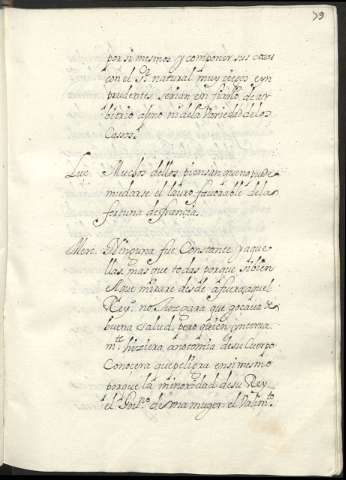 39
por si mesmos y componer sus cosas
con el Sr. natural muy ciegos e ym
prudentes serian en fiarlo de ar
bitrio ageno ni de la Variedad de los
Casos.
Luc. Muchos dellos piensan que no puede
mudarse el favorable de la
fortuna de françia.
Merc. Ninguna fue Constante y aque
lla mas que todas porque si bien
el que mirare desde afuera aquel
Rey.no Juzgara que goçava de
buena salud, pero quien interna
m.te hiziera anotomia de su Cuerpo
Conocera que peligra en si mesmo
porque la minoridad de su Rey
el Gov.no de una muger el Valim.to